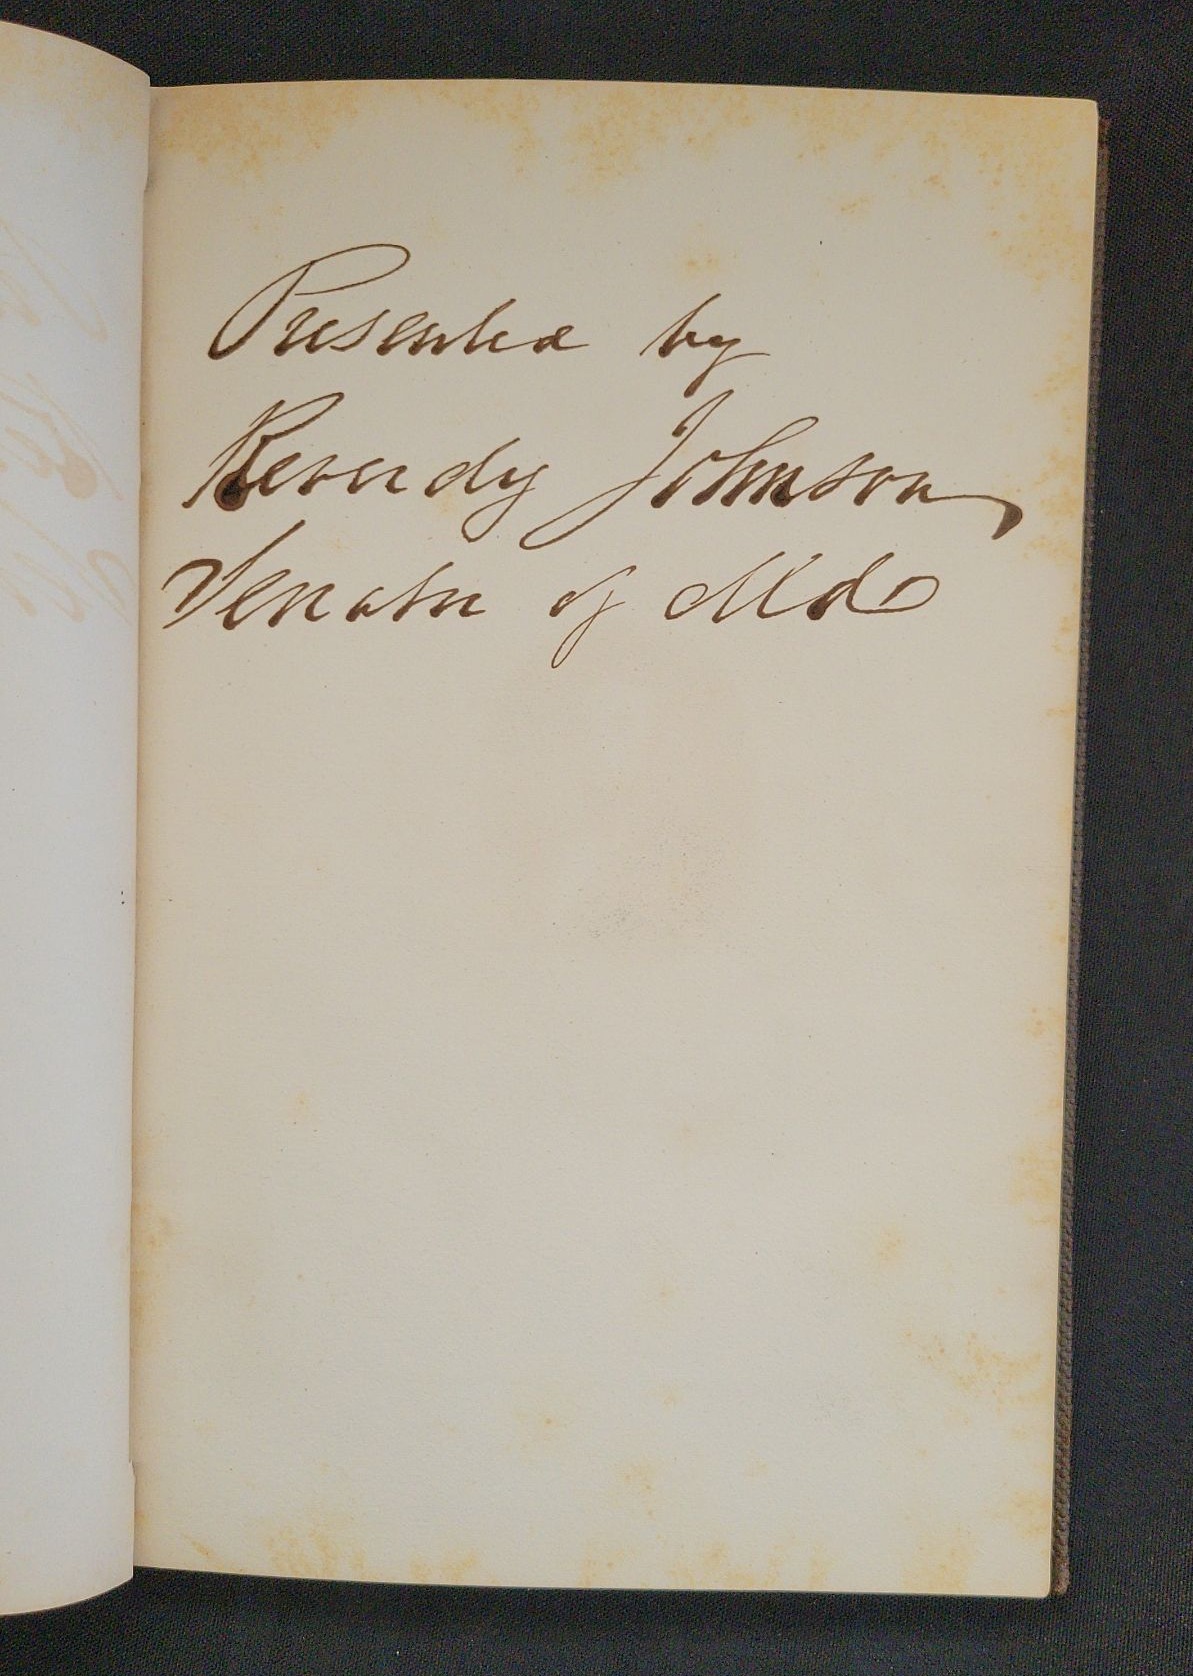 Presented by
Reverdy Johnson
Senator of Md